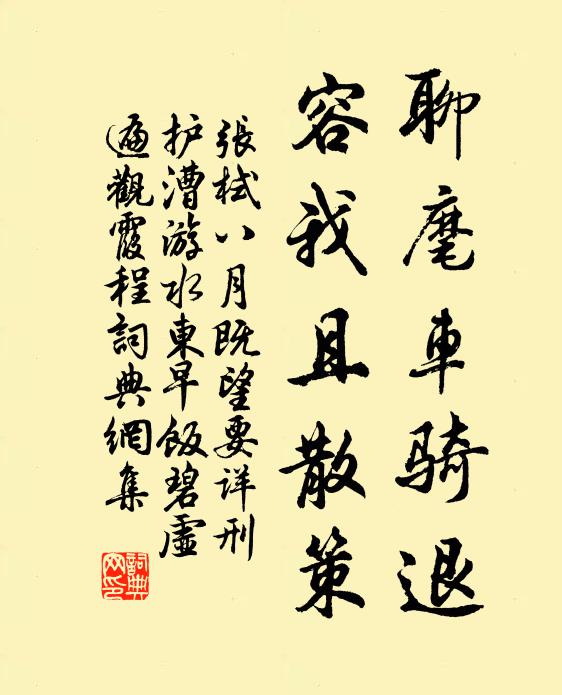 聊麾車骑退
容我且散策
張栻八月既望要详刑
护漕游水東早飯碧虛
遍觀霞程詞典網集
詞典網印